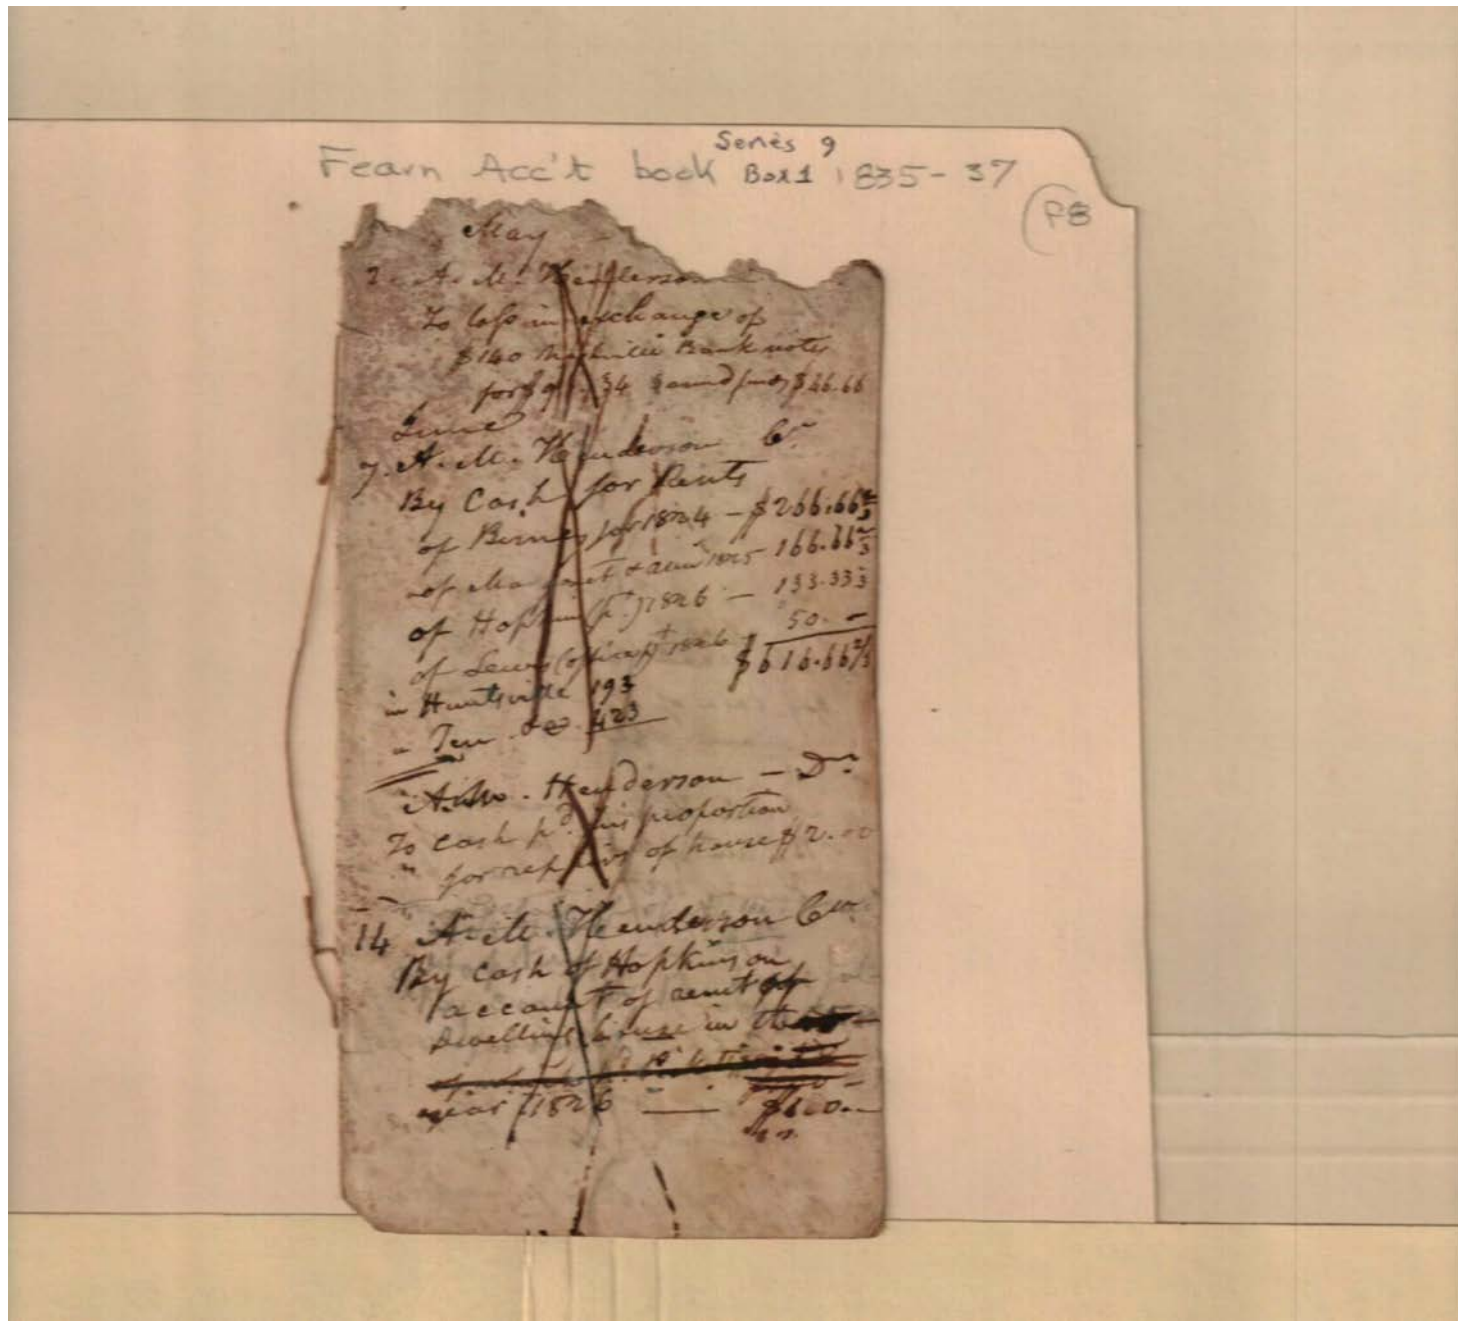 Series 9
Fearn Acc't book Box 1 1835-37
P8
May
A. M. Henderson
To loss in exchange of
$140 Nashville Bank notes
for $9 .34 sound funds $46.66
June
7. A. M. Henderson Cr.
By Cash for Rents
of for 1824 - $266.66 2/3
of 1825 166.66 2/3
of Hopkins (pt) 1826 - 133.33 1/3
of Lewis (office) pt 1826 50. -
$616.66 2/3
in Huntsville 193
" Ten. do. 423
A. M. Henderson - Dr
To cash pd. his proportion
" for repairs of house $2.00
14 A. M. Henderson Cr
By cash of Hopkins on
account of rent of
Dwelling house in
year 1826 —